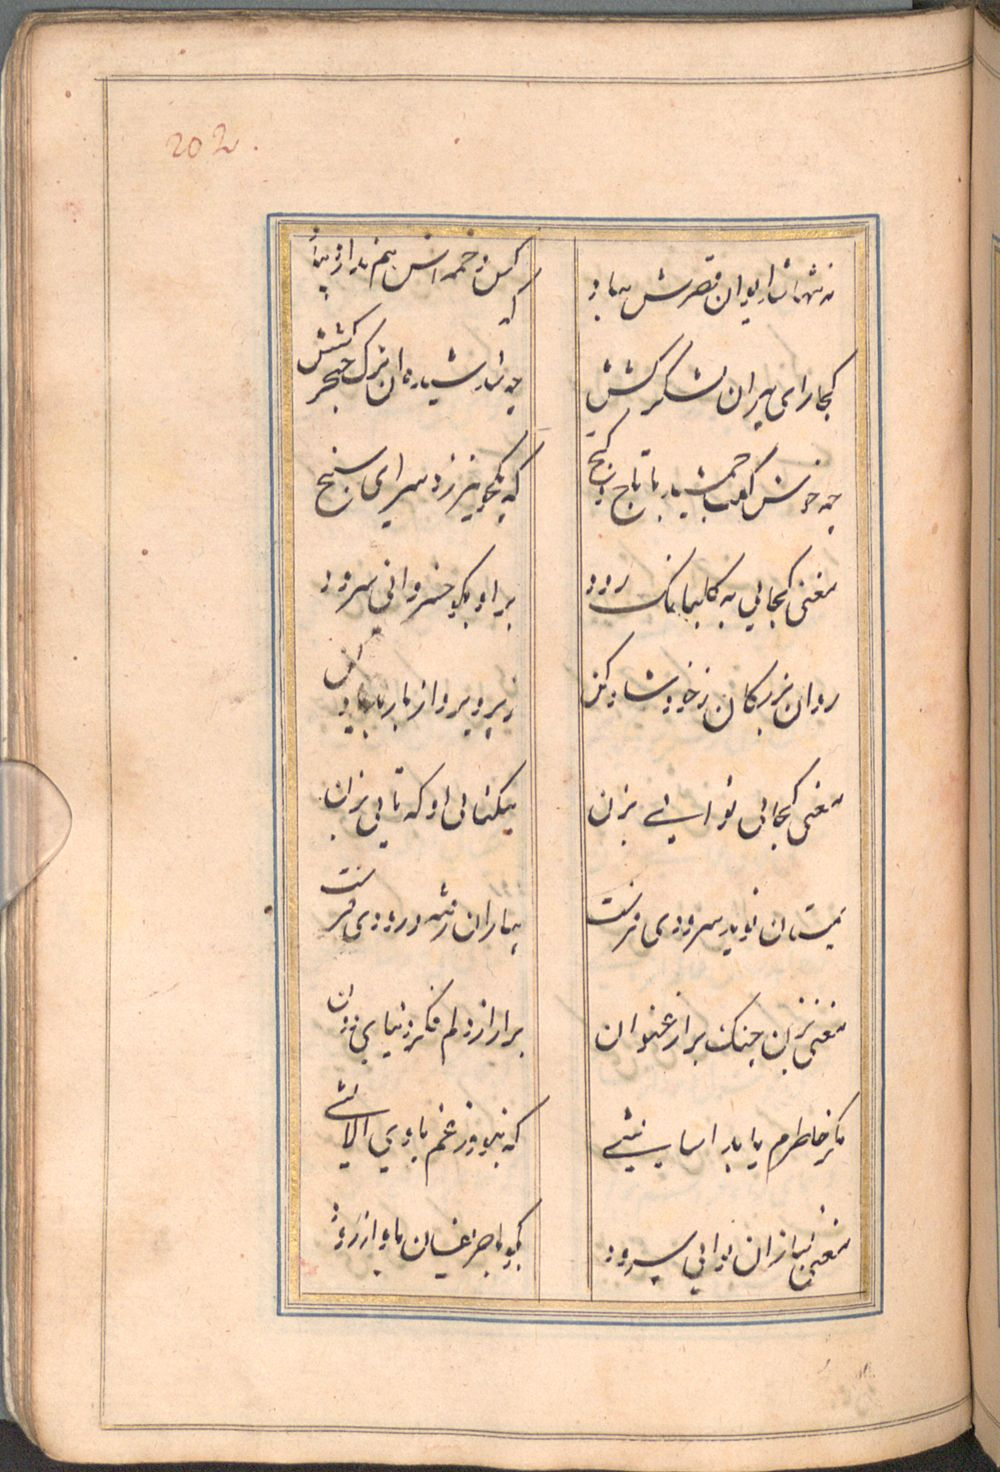 202.
نه تنها شد ایوان قصرش بباد
که کس دخمه اش هم ندارد بیاد
کجا رای پیران لشکر کشش
چه شد شیده ان ترک خنجر کشش
چه خوش گفت جمشید با تاج و گنج
که یکجو نیرزد سرای سپنج
مغنی کجایی به گلبانک رود
بیاد آور آن خسروانی سرود
روان بزرگان ز خود شاد کن
ز پرویز و از باربد یاد کن
مغنی کجائی نوایی بزن
بیکتائی او که تایی بزن
بمستان نوید سرودی فرست
بیاران رفته درودی فرست
مغنی بزن چنگ بر ارغنون
برار از دلم فکر دنیای دون
مگر خاطرم یابد آسایشی
که نبود ز غم با وی آلایشی
مغنی بساز آن نوایی سرود
بگو با حریفان باواز رود